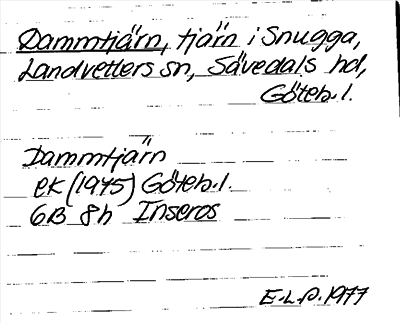 Dammtjärn, tjärn i Snugga,
Landvetters sn, Sävedals hd,
Göteb. l.
Dammtjärn
EK (1975) Göteb. l.
6B 8h Inseros
E.L.P. 1977